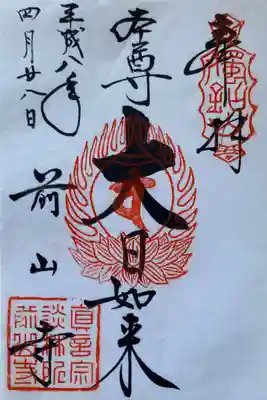 奉拝
本尊 大日如来
前山寺
平成八年
四月廿八日
真言宗